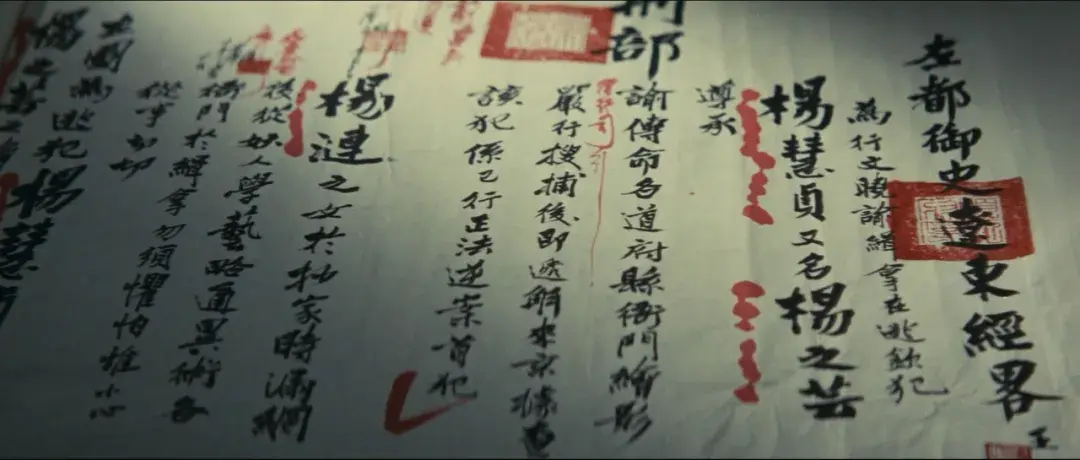 左都御史遼東經畧王
為行文曉諭緝拿在逃欽犯
楊慧貞又名楊之芸
遵承
刑部
諭傳命各道府縣衙門繪形
嚴行搜捕後即遞解來京據查
該犯係已行正法逆案首犯
楊漣之女於抄家時漏網
後從妖人學藝略通異術各
衙門於緝拿勿須懼怕惟小心
從事為切
圖為逃犯楊慧